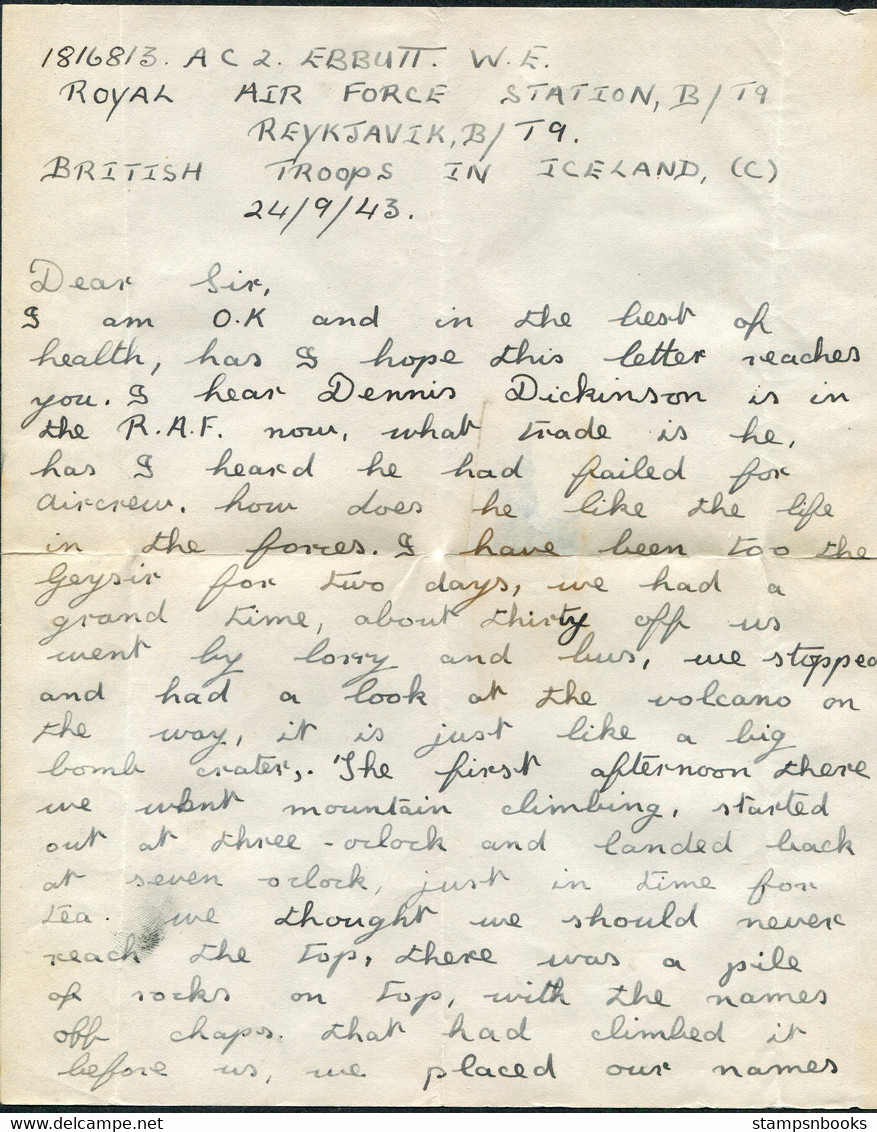 1816813. A C 2. EBBUTT. W.E.
ROYAL AIR FORCE STATION, B/T9
REYKJAVIK, B/T9.
BRITISH TROOPS IN ICELAND, (C)
24/9/43.
Dear Sir,
I am O.K and in the best of
health, has I hope this letter reaches
you. I hear Dennis Dickinson is in
the R.A.F. now, what trade is he,
has I heard he had failed for
aircrew. how does he like the life
in the forces. I have been too the
Geysir for two days, we had a
grand time, about thirty off us
went by lorry and bus, we stopped
and had a look at the volcano on
the way, it is just like a big
bomb crater,. The first afternoon there
we went mountain climbing, started
out at three-oclock and landed back
at seven oclock, just in time for
tea. we thought we should never
reach the top, there was a pile
of rocks on top, with the names
off chaps. that had climbed it
before us, we placed our names
stampsnbooks